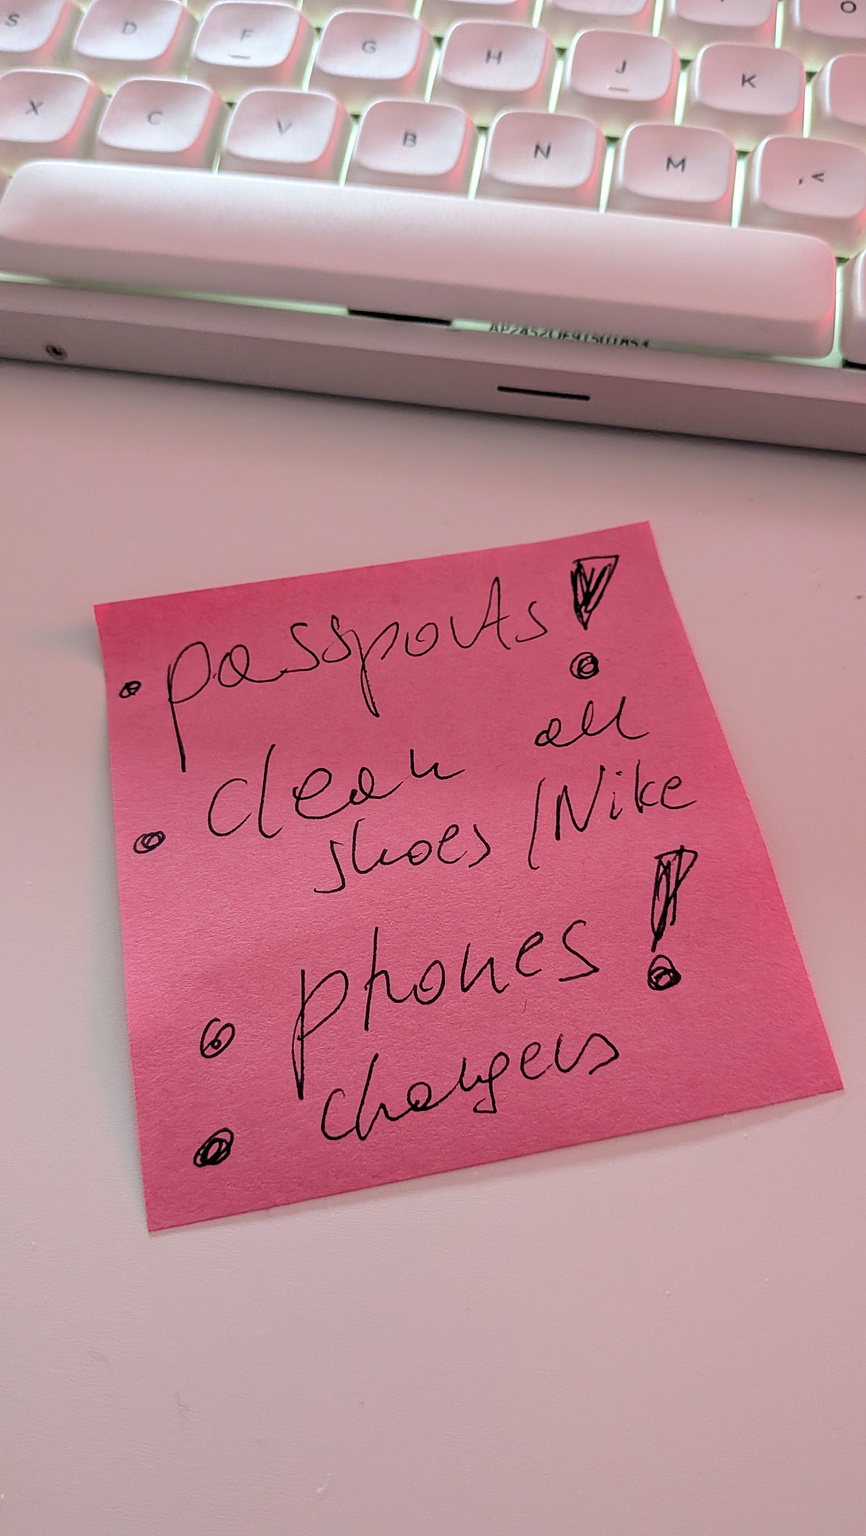 S D F G H J K O
X C V B N M , <
• passports!
• clean all
shoes / Nike
• phones!
• chargers